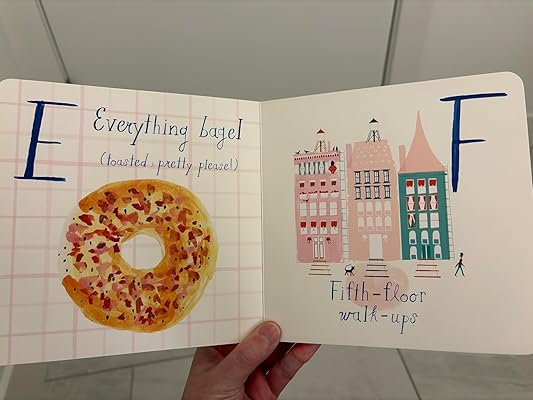 E
Everything bagel
(toasted, pretty please!)
F
Fifth-floor
walk-ups